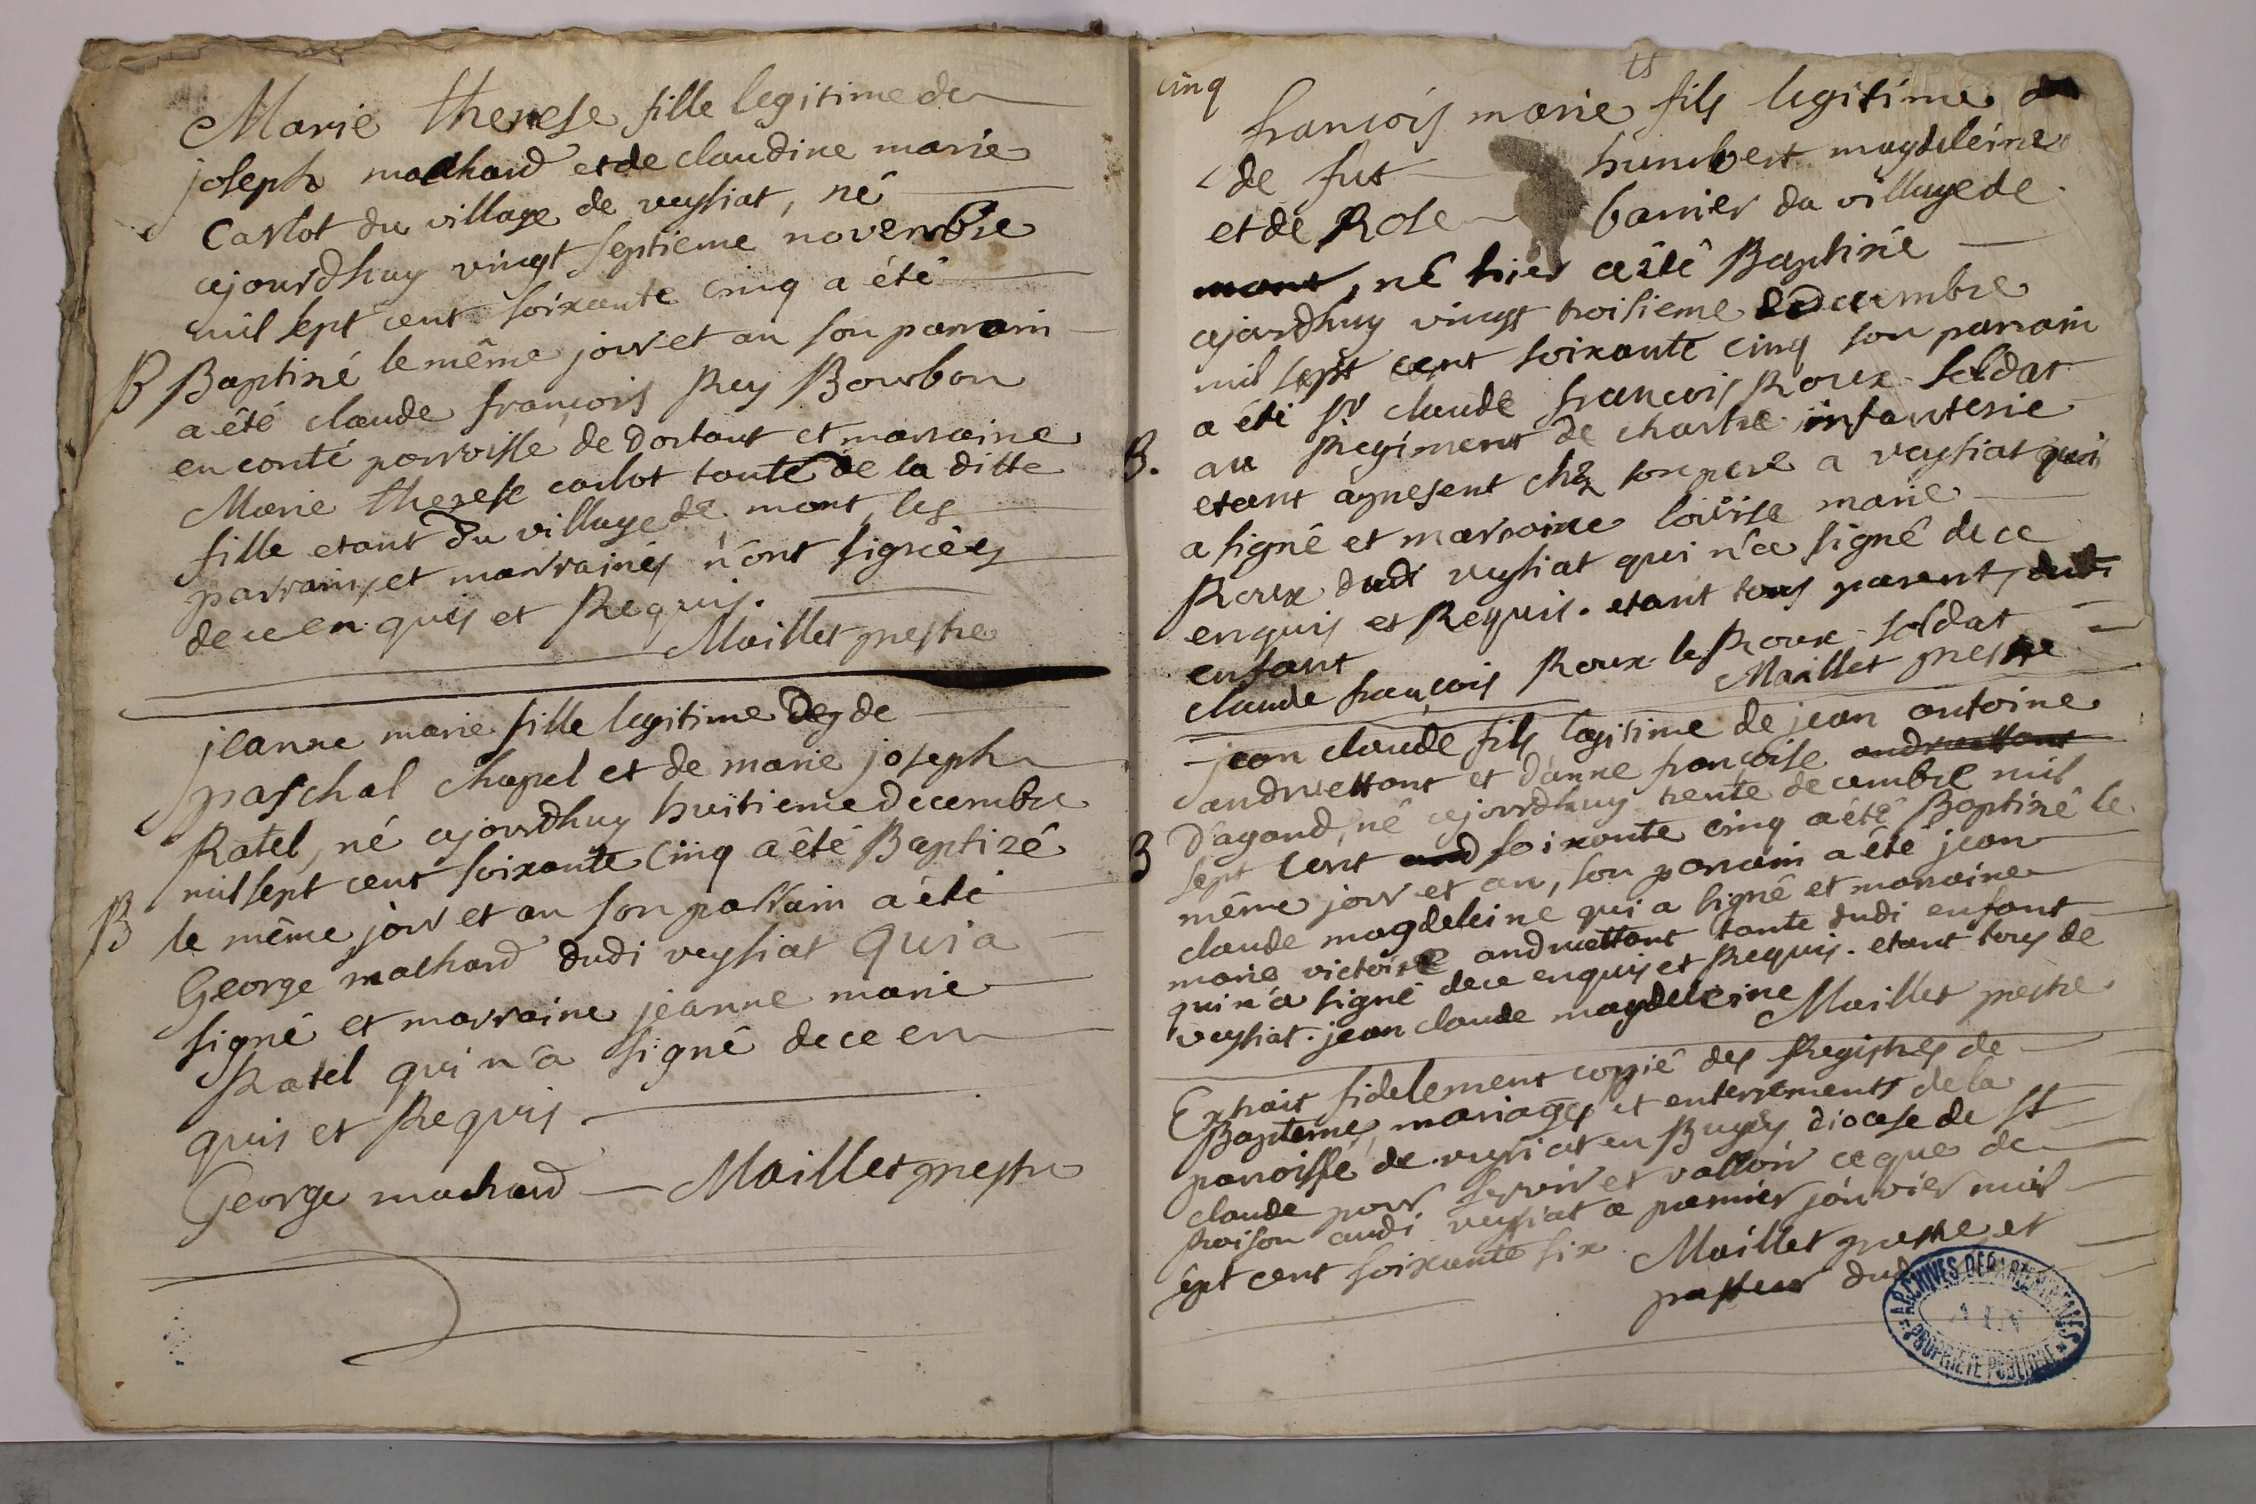 Marie therese fille legitime de
joseph machard et de claudine marie
Carlot du village de veysiat, né
ajourdhuy vingt septieme novembre
mil sept cent soixante cinq a été
B Baptizé le même jour et an son parrain
a été claude françois Rey Bourbon
en conté parroisse de dortant et marraine
Marie therese carlot tante de la ditte
fille etant du village de mont, les
parrains et marraines n'ont signées
de ce en quis et Requis.
Maillet prestre
jeanne marie fille legitime de
paschal chapel et de marie joseph
Ratel, né ajourdhuy huitieme decembre
mil sept cent soixante cinq a été Baptizé
B le même jour et an son parrain a été
George machard dudi veysiat qui a
signé et marraine jeanne marie
Ratel qui n'a signé de ce en
quis et Requis.
George machard Maillet prestre
cinq
françois marie fils legitime
de fut humbert magdeleine
et de Rose banier du village de
mont, né hier a été Baptizé
ajourdhuy vingt troisieme decembre
mil sept cent soixante cinq son parrain
a été sr claude françois Roux soldat
B. au Regiment de chartre infanterie
etant apresent chez son pere a veysiat qui
a signé et marraine loüise marie
Roux dudi veysiat qui n'a signé de ce
enquis et Requis. etant tous parents dudi
enfant
claude françois Roux le Roux soldat
Maillet prestre
jean claude fils legitime de jean antoine
andruettant et d'anne françoise andruettant
D'agand, né ajourdhuy trente decembre mil
B sept cent soixante cinq a été Baptizé le
même jour et an, son parrain a été jean
claude magdeleine qui a signé et marraine
marie victoire andruettant tante dudi enfant
qui n'a signé de ce enquis et Requis. etant tous de
veysiat. jean claude magdeleine Maillet prestre
Extrait fidelement copié des Registres de
Baptemes, mariages et enterrements de la
parroisse de veysiat en Bugey diocese de st
claude pour servir et valloir ce que de
Raison audi veysiat ce premier janvier mil
sept cent soixante six. Maillet prestre et
pasteur dud
ARCHIVES DEPARTEMENTALES
AIN
PROPRIÉTÉ PUBLIQUE